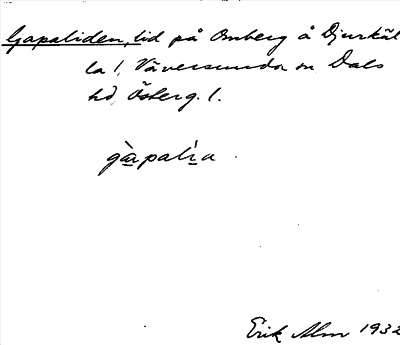 Gapaliden, lid på Omberg å Djurkäl
la 1, Väversunda sn Dals
hd, Österg. l.
gàpalìa.
Erik Alm 1932